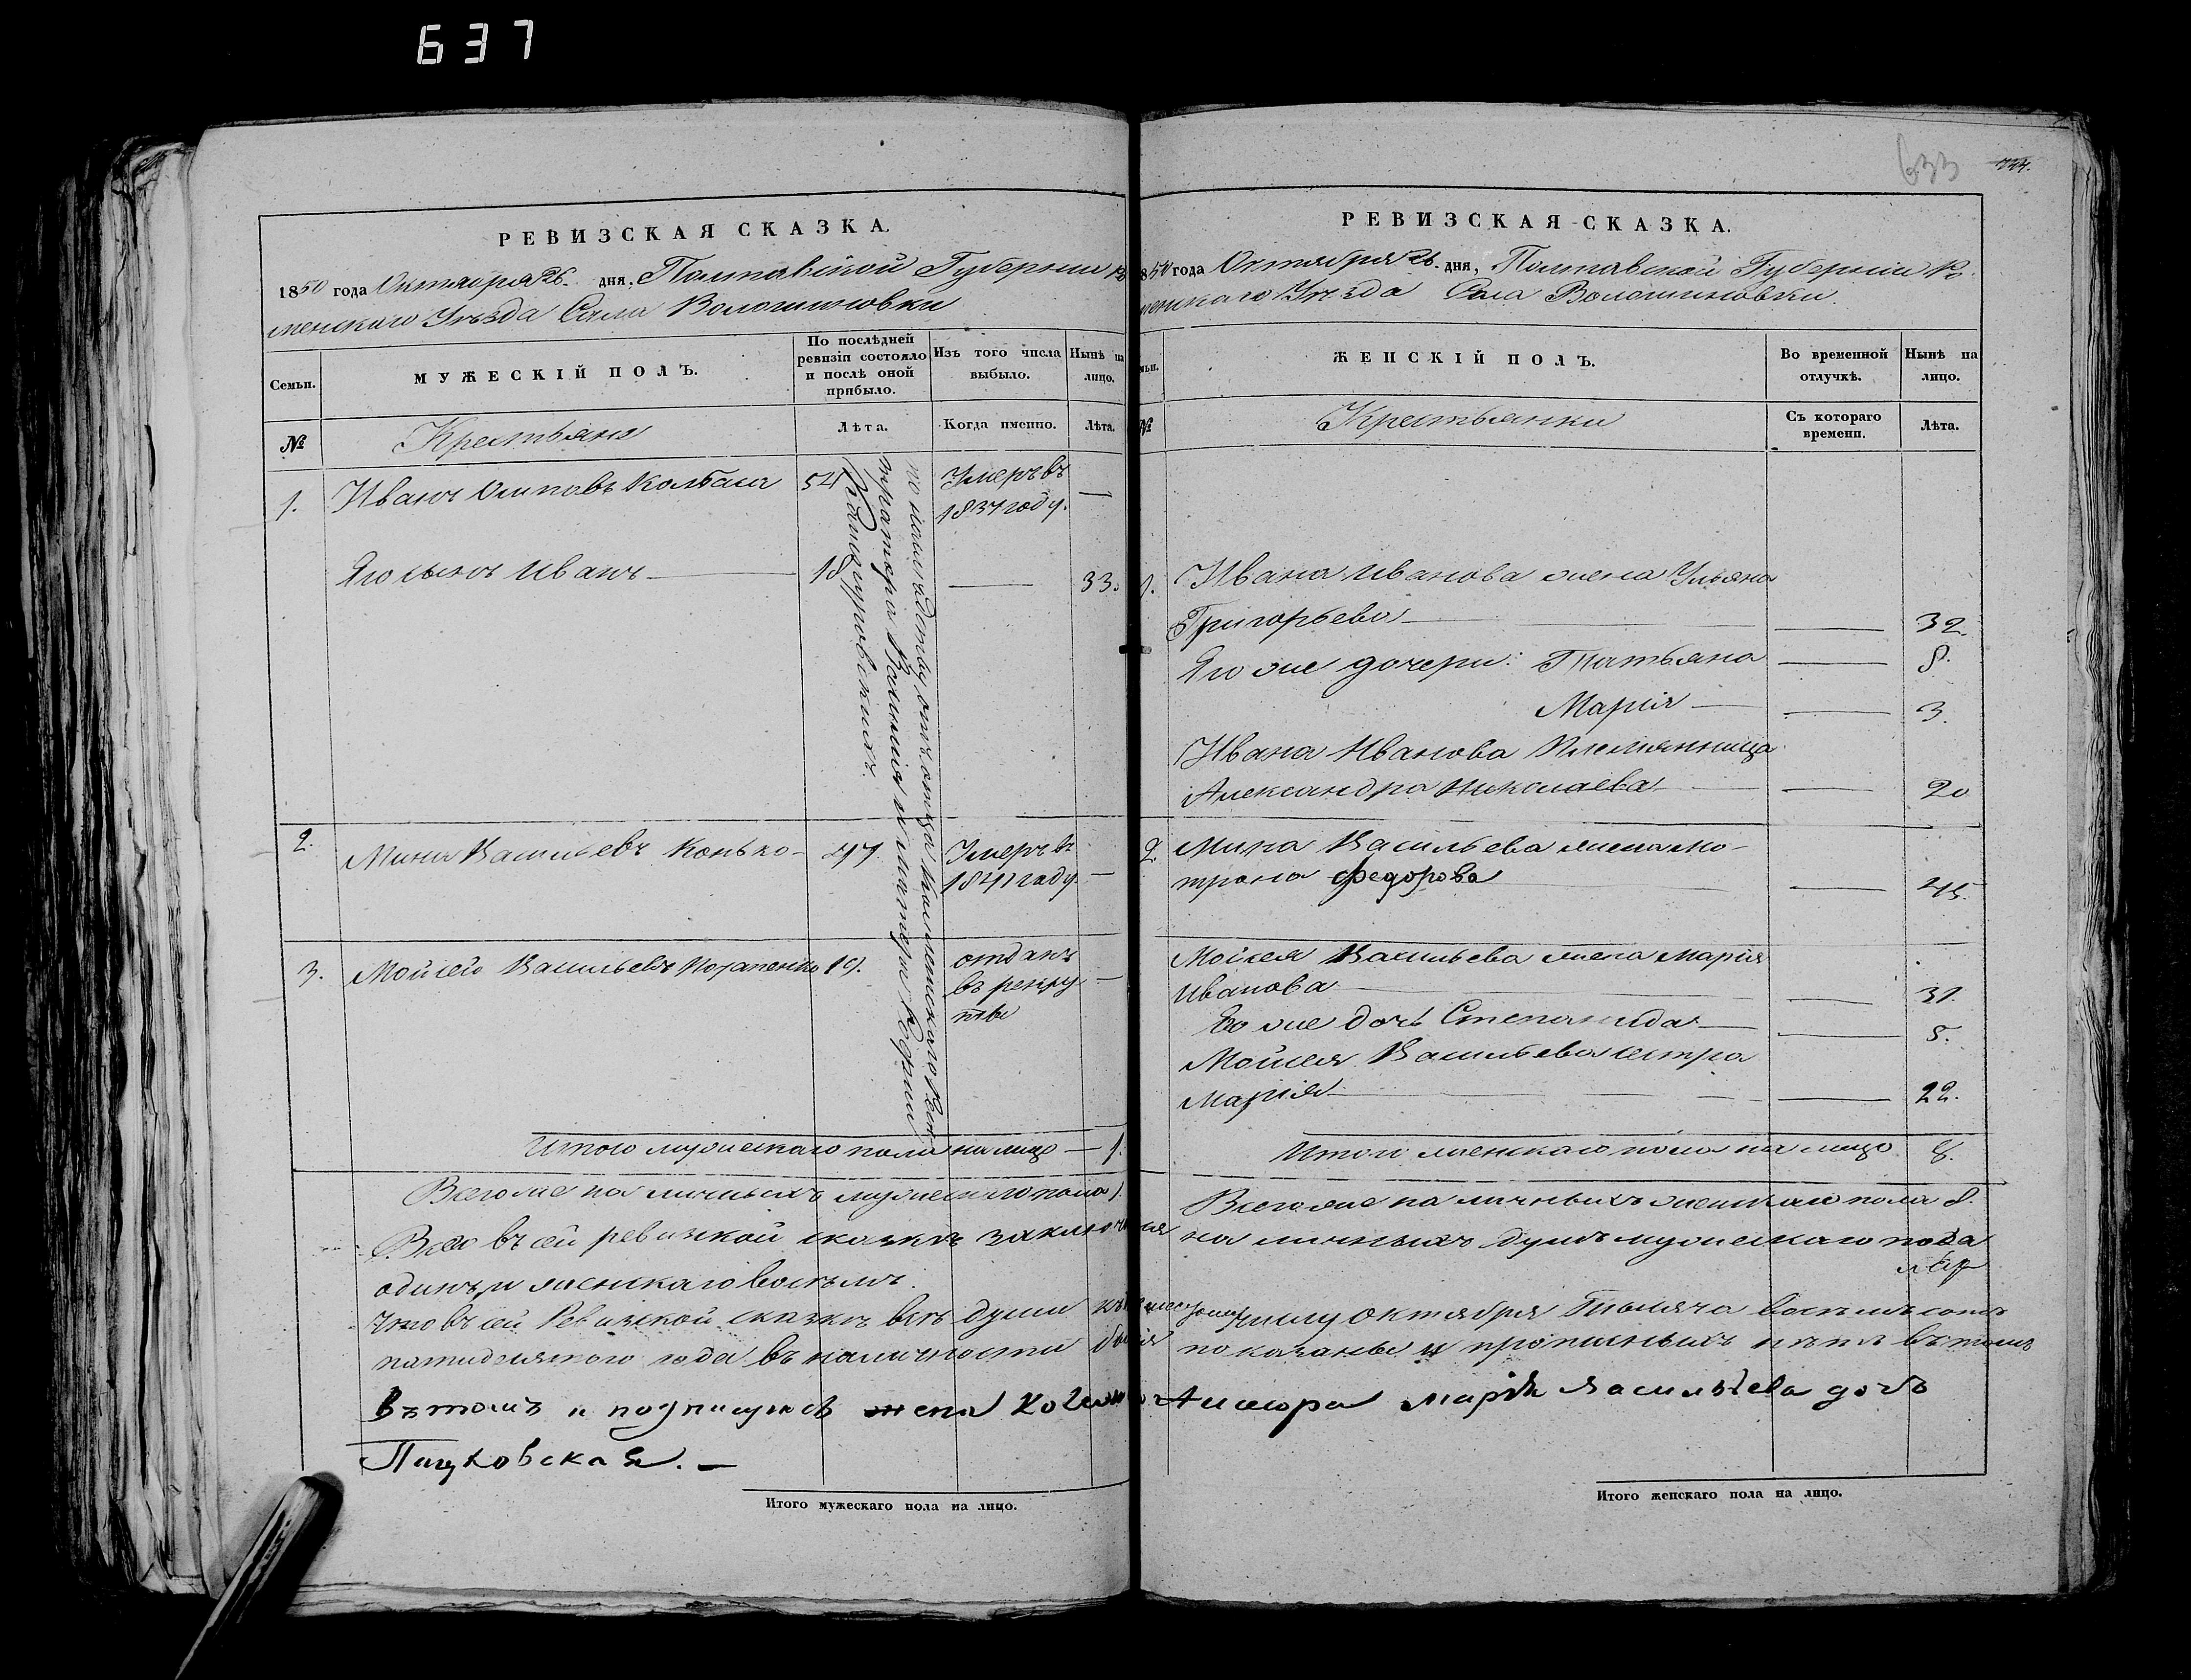 637
633
РЕВИЗСКАЯ СКАЗКА.
1850 года Октября 26. дня, Полтавской Губернии Ро
менского Уѣзда Села Волошиновки
Семьи.
МУЖЕСКІЙ ПОЛЪ.
По послѣдней ревизіи состояло и послѣ оной прибыло.
Изъ того числа выбыло.
Нынѣ на лицо.
№
Крестьяне
Лѣта.
Когда именно.
Лѣта.
1. Иванъ Осиповъ Колбаса 54 Умеръ въ 1837 году. —
Его сынъ Иванъ — 18 — 33.
2. Мина Васильевъ Конько 47 Умеръ въ 1841 году —
3. Мойсей Васильевъ Потапенко 19. отданъ въ рекруты —
по наслѣдству отъ отца
и матери
Итого мужескаго пола на лицо — 1.
Всего же наличныхъ мужескаго пола 1.
РЕВИЗСКАЯ СКАЗКА.
1850 года Октября 26. дня, Полтавской Губерніи Ро
менскаго Уѣзда Села Волошиновки.
ЖЕНСКІЙ ПОЛЪ.
Во временной отлучкѣ.
Нынѣ на лицо.
№
Крестьянки
Съ котораго времени.
Лѣта.
1. Ивана Иванова жена Ульяна
Григорьева — — 32.
Его же дочери: Татьяна — 8.
Марія — — 3.
Ивана Иванова племянница
Александра Николаева — — 20
2. Мина Васильева жена Мо-
трона Федорова — 45.
Мойсея Васильева жена Марія
Иванова — — 31.
Его же дочь Степанида — — 5.
Мойсея Васильева сестра
Марія — — 22.
Итого женскаго пола на лицо 8.
Всего же наличныхъ женскаго пола 8.
Всего въ сей ревизкой сказкѣ заключается наличныхъ душъ мужескаго пола
одинъ, и женскаго восемь.
Что въ сей Ревизской сказкѣ всѣ души къ числу Октября Тысяча восемь сотъ
пятидесятого года въ наличности бывшія показаны и прописныхъ нѣтъ въ томъ
Въ томъ и подписуюсь жена Марія Васильева дочь
Пацковская. —
Итого мужескаго пола на лицо.
Итого женскаго пола на лицо.